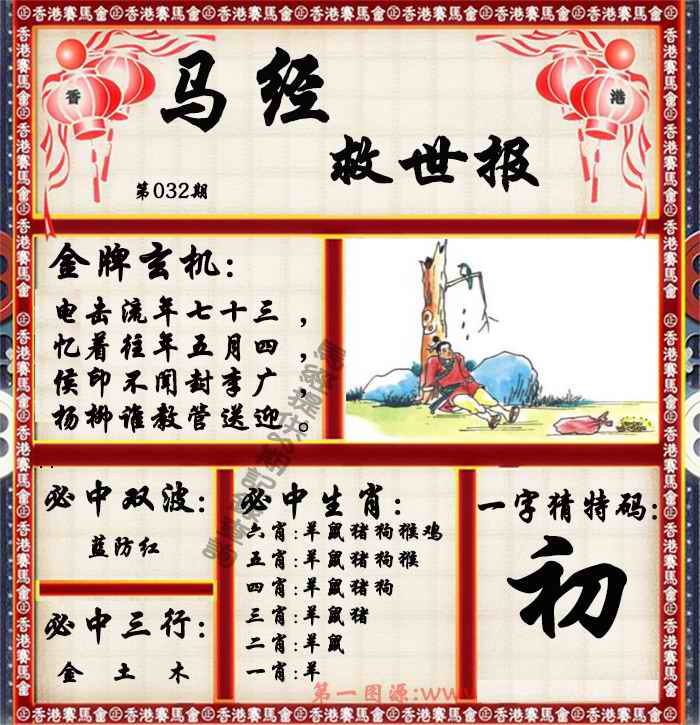 香港賽馬會 香港賽馬會 香港賽馬會 香港賽馬會 香港賽馬會 香港賽馬會 香港賽馬會
香
港
马经
救世报
第032期
金牌玄机：
电击流年七十三，
忆着往年五月四，
侯印不闻封李广，
杨柳谁教管送迎。
必中双波：
蓝防红
必中三行：
金 土 木
必中生肖：
六肖:羊鼠猪狗猴鸡
五肖:羊鼠猪狗猴
四肖:羊鼠猪狗
三肖:羊鼠猪
二肖:羊鼠
一肖:羊
一字猜特码：
初
第一图源:www